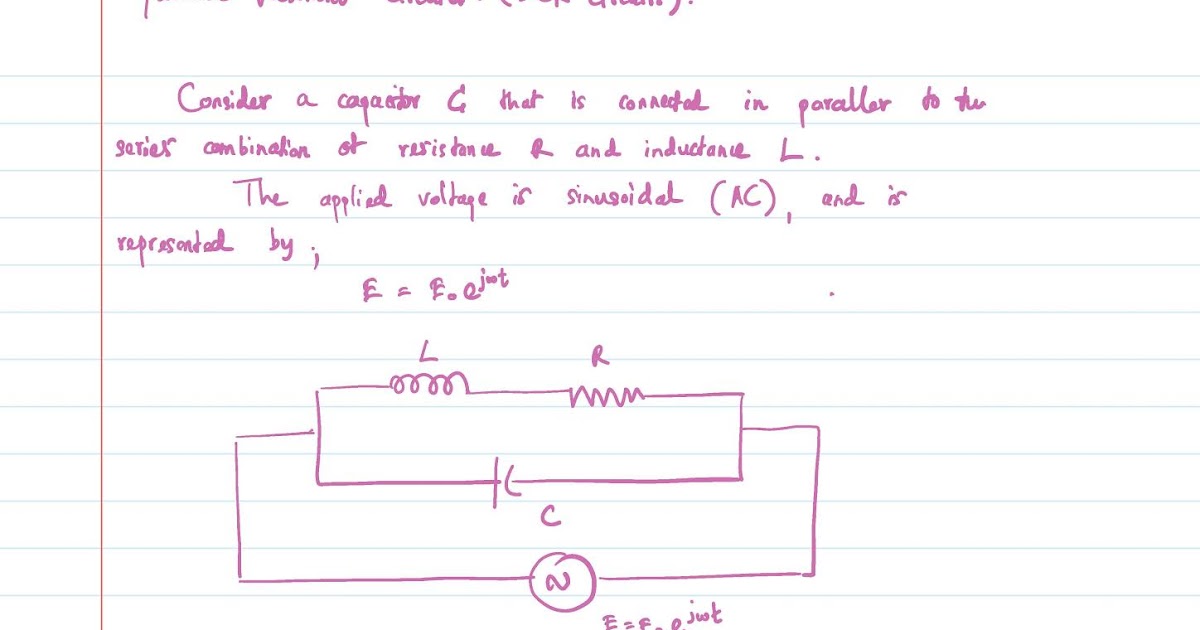 Consider a capacitor C that is connected in parallel to the
series combination of resistance R and inductance L.
The applied voltage is sinusoidal (AC), and is
represented by;
E = E₀ e^jωt
L
R
C
E = E₀ e^jωt